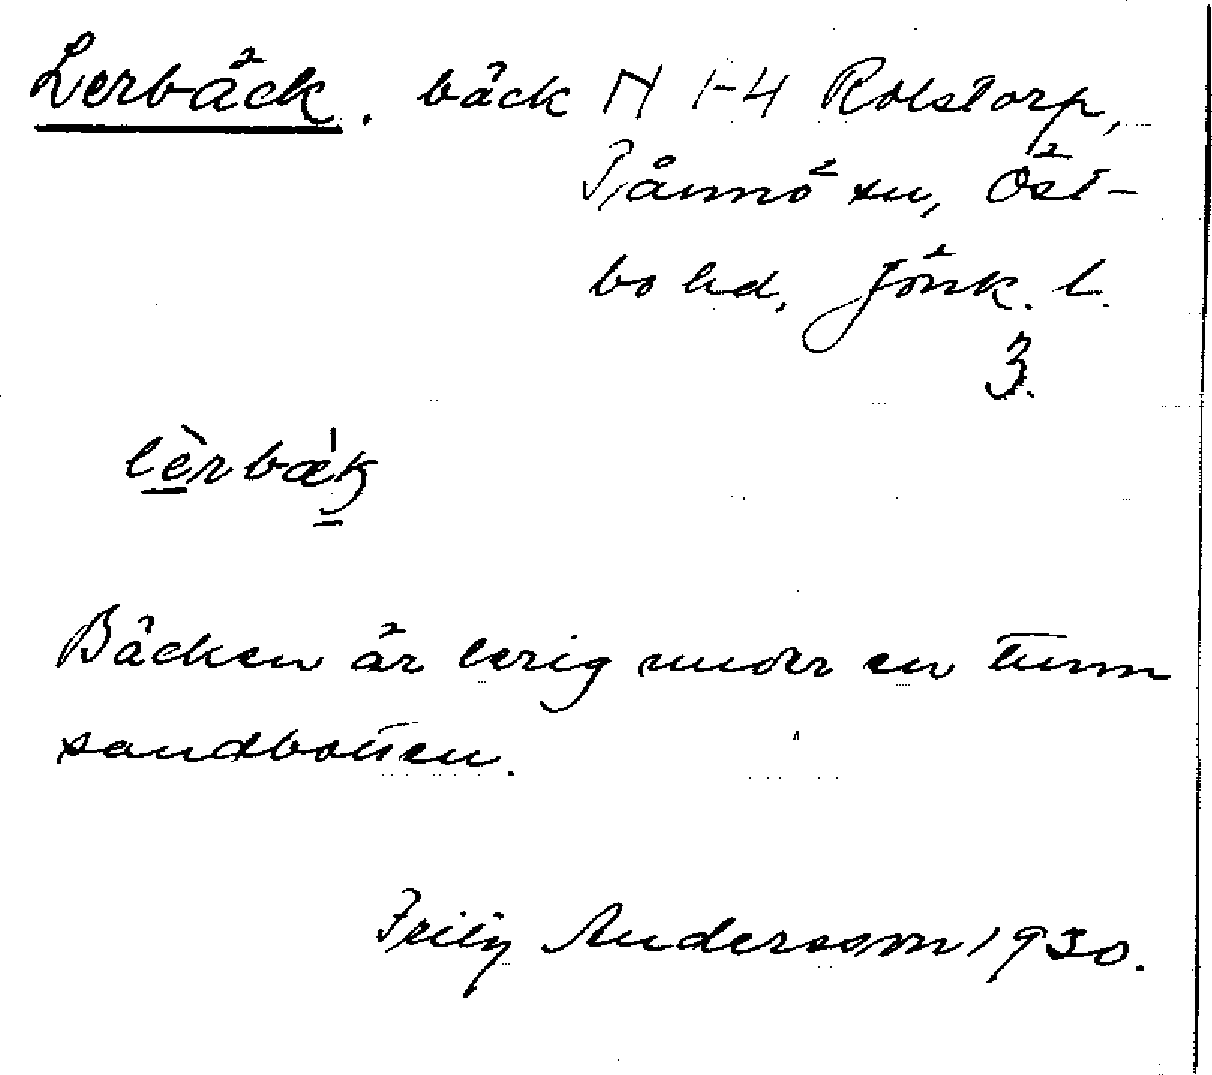 Lerbäck. bäck N 1-4 Rolstorp,
Tånnö sn, Öst-
bo hd, Jönk. l.
3.
lèrbæ̀k
Bäcken är lerig under en tunn
sandbotten.
Andersson 1930.